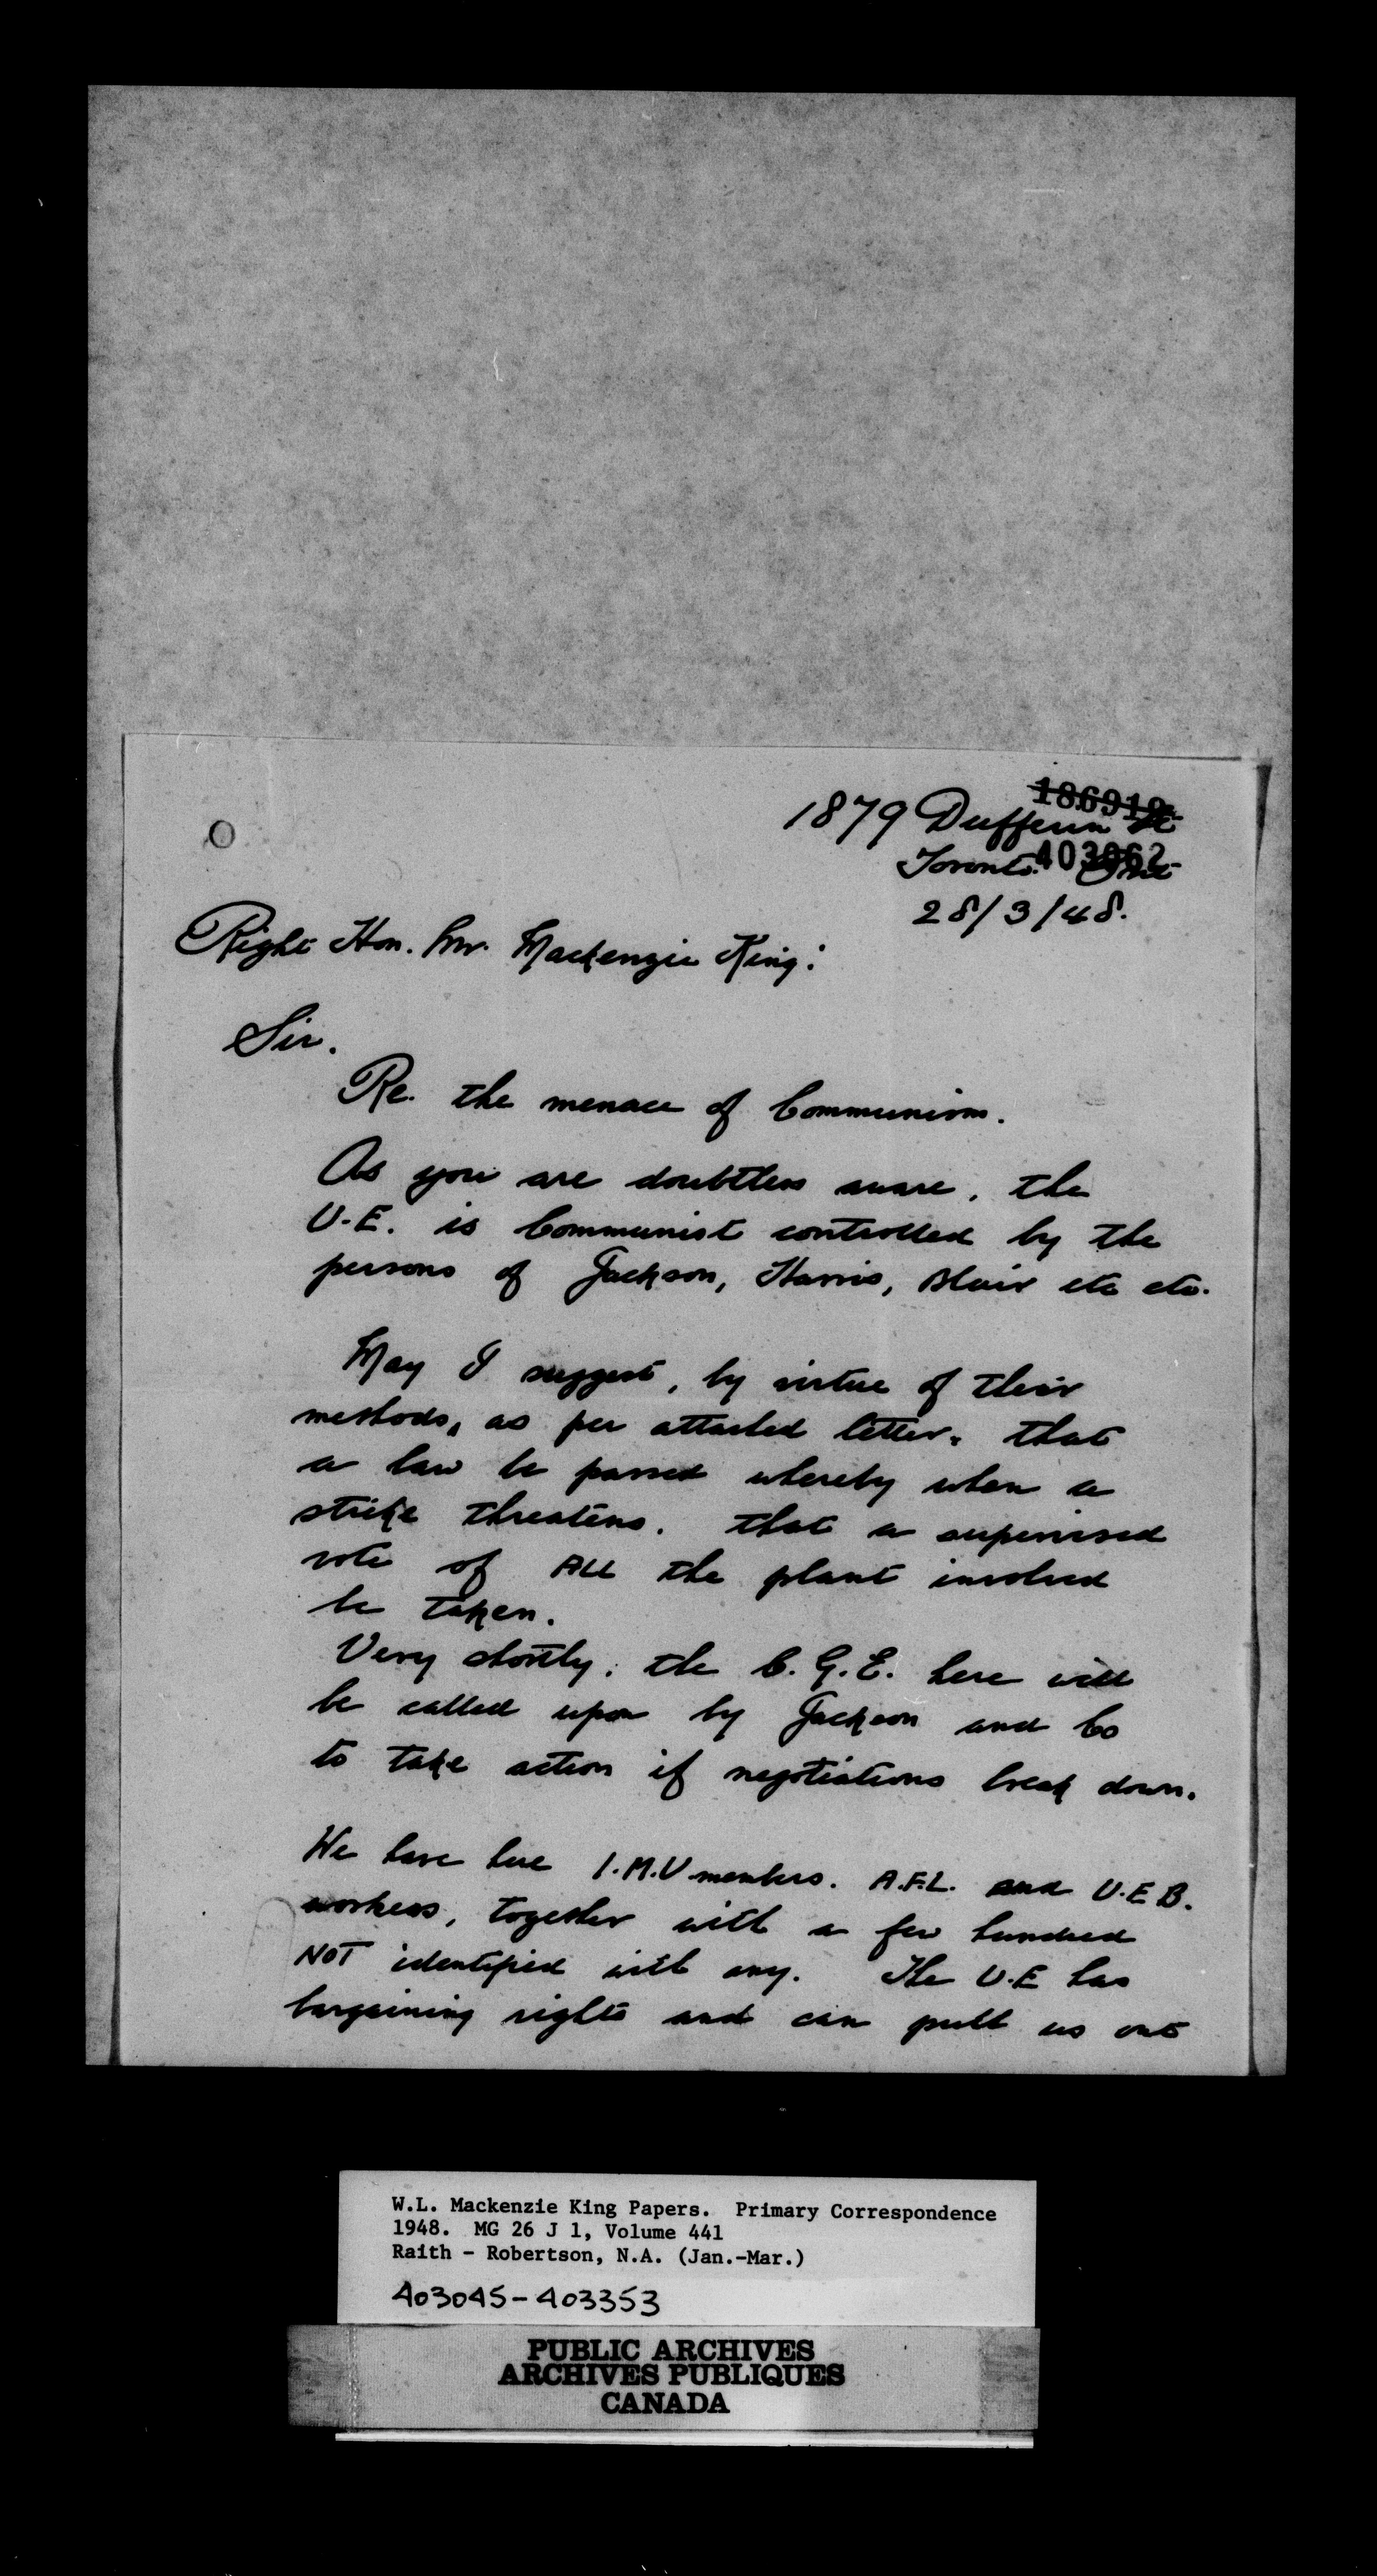 186919
1879 Dufferin St
403062
Toronto. Ont
28/3/48.
Right Hon. Mr. Mackenzie King:
Sir.
Re. the menace of Communism.
As you are doubtless aware, the
U.E. is Communist controlled by the
persons of Jackson, Harris, Blair etc etc.
May I suggest, by virtue of their
methods, as per attached letter, that
a law be passed whereby when a
strike threatens. that a supervised
vote of ALL the plant involved
be taken.
Very shortly, the C.G.E. here will
be called upon by Jackson and Co
to take action if negotiations break down.
We have here I.M.U members. A.F.L. and U.E B.
workers, together with a few hundred
NOT identified with any. The U.E has
bargaining rights and can pull us out
W.L. Mackenzie King Papers. Primary Correspondence
1948. MG 26 J 1, Volume 441
Raith - Robertson, N.A. (Jan.-Mar.)
403045-403353
PUBLIC ARCHIVES
ARCHIVES PUBLIQUES
CANADA